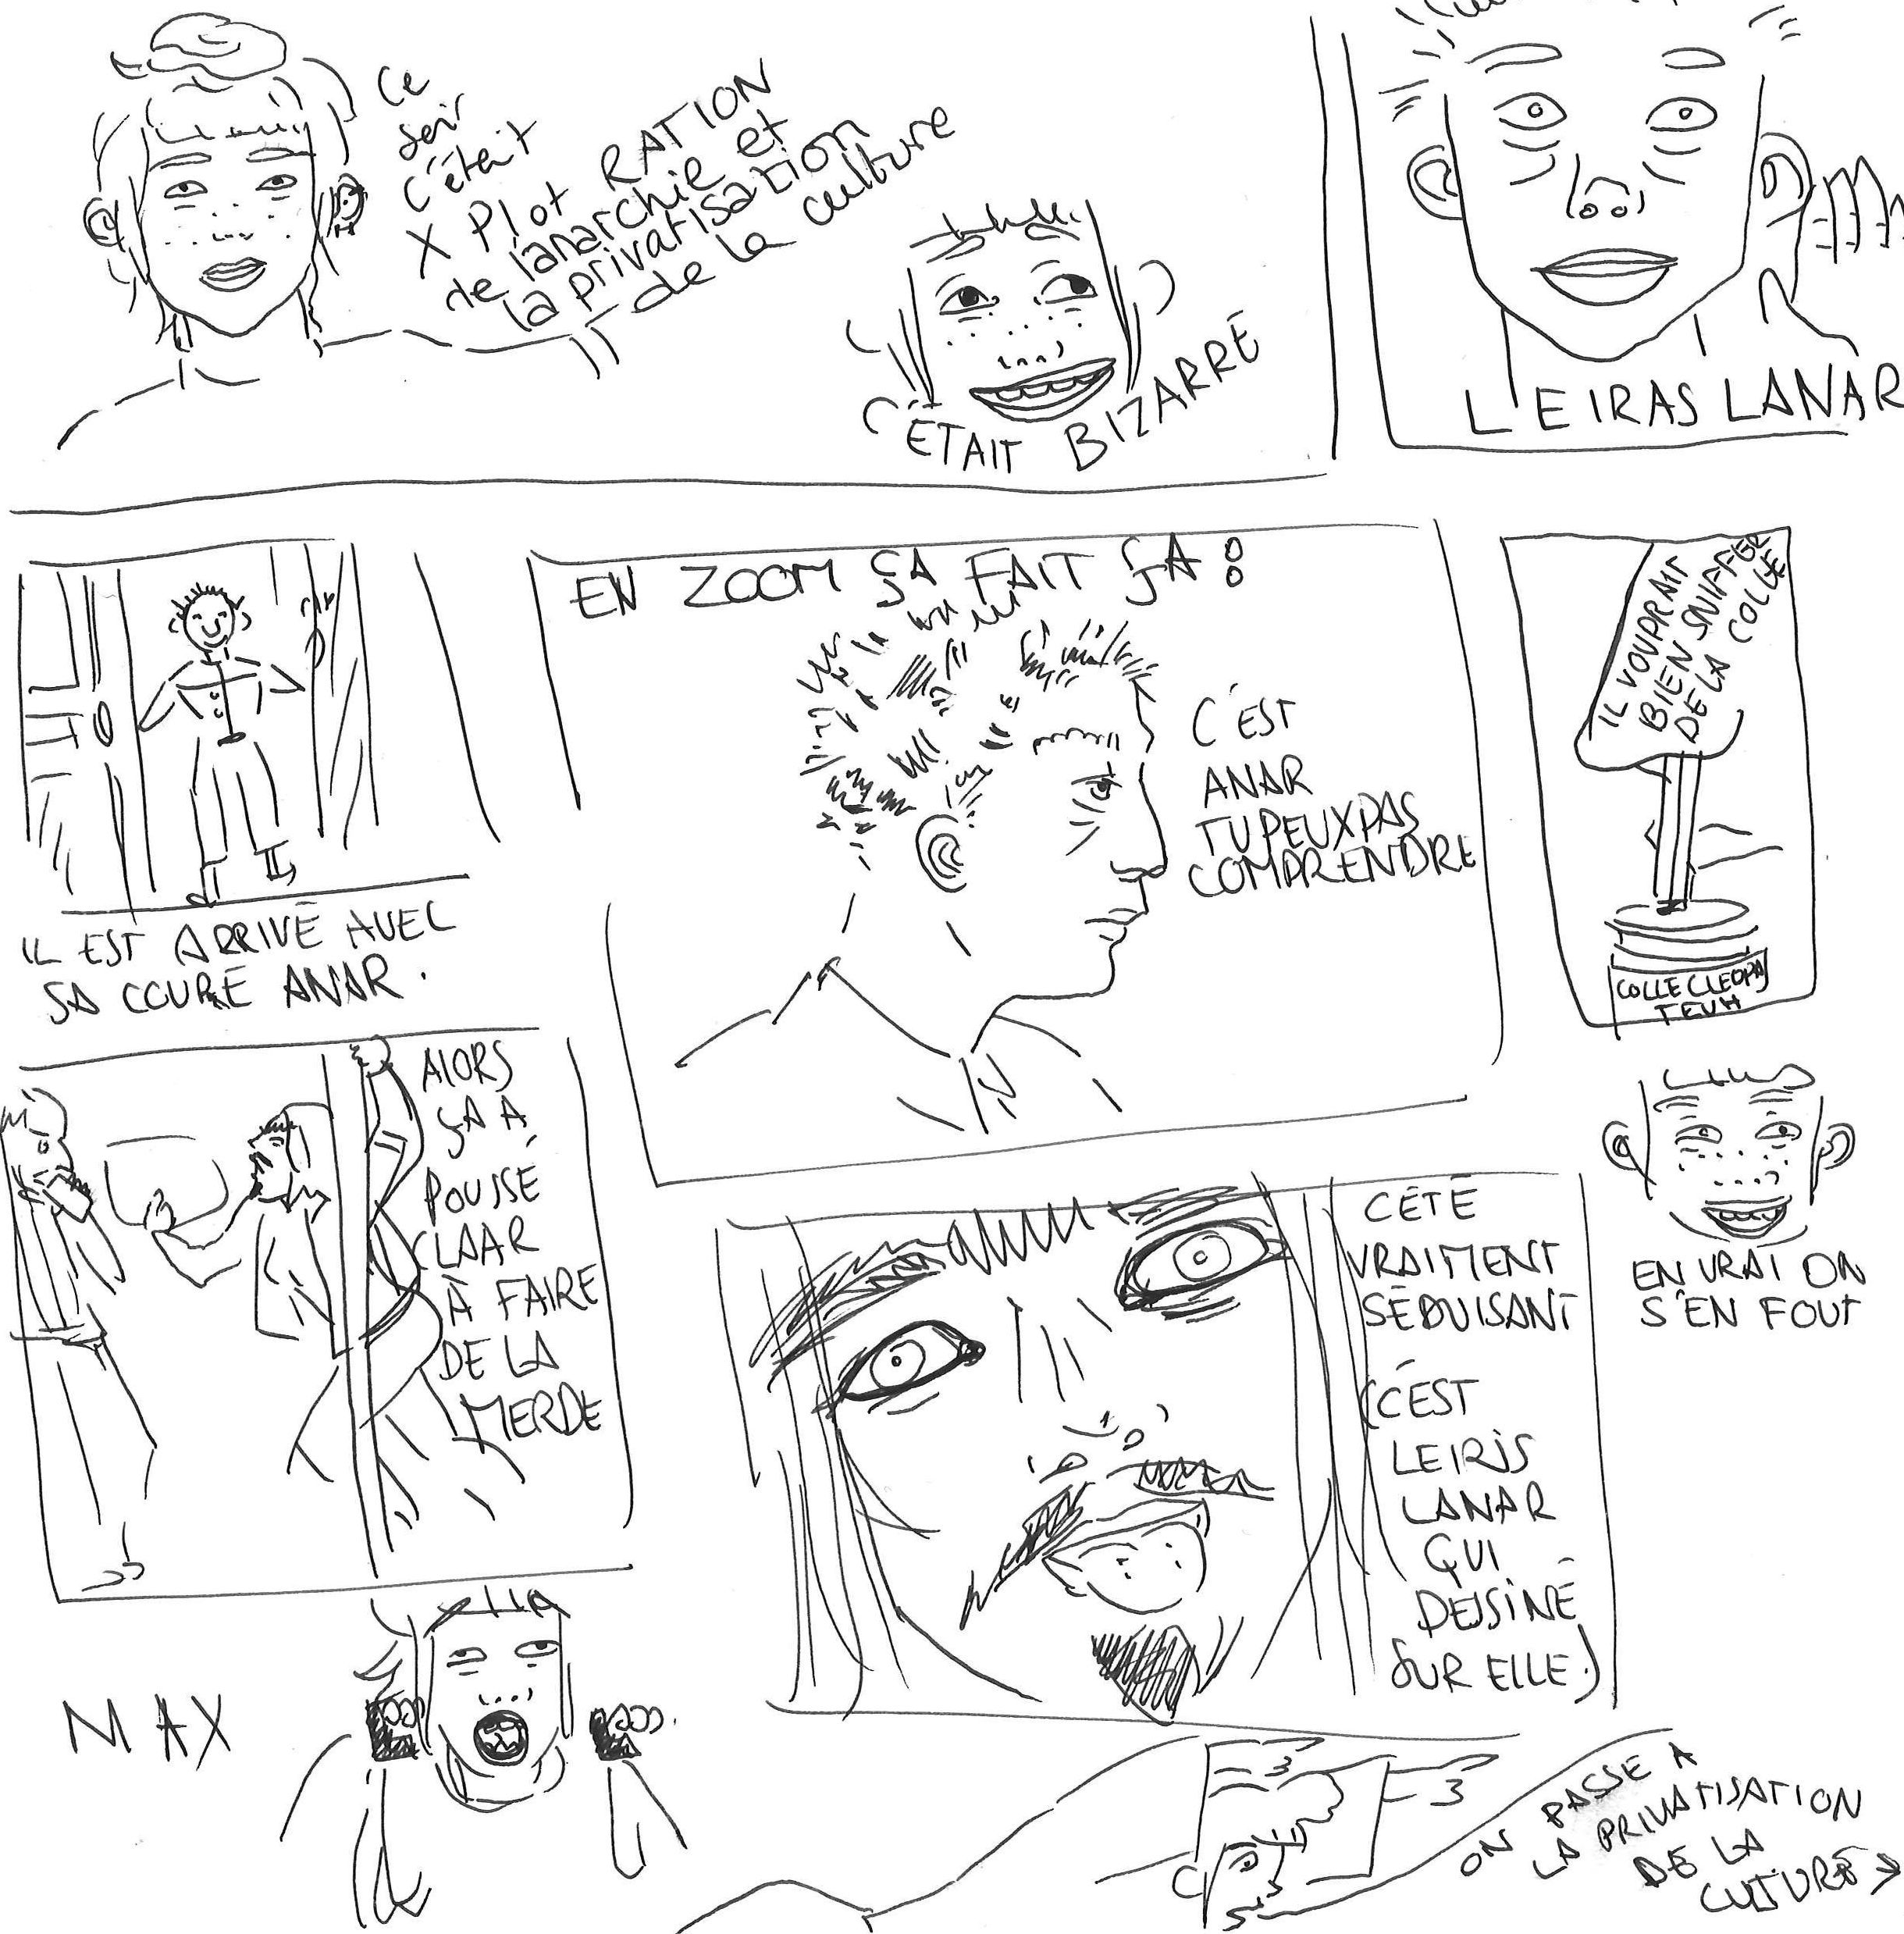 Ce
soir
c'était
X Plot RATION
de l'anarchie et
la privatisation
de la culture
C'ÉTAIT BIZARRE
LEIRAS LANAR
EN ZOOM ÇA FAIT ÇA :
C'EST
ANAR
TU PEUX PAS
COMPRENDRE
IL VOUDRAIT
BIEN SNIFFER
DE LA COLLE
COLLE CLEOPA
TEUH
IL EST ARRIVÉ AVEC
SA COUPE ANAR.
ALORS
ÇA A
POUSSÉ
CLAAR
À FAIRE
DE LA
MERDE
CÉTÉ
VRAIMENT
SÉDUISANT
(C'EST
LEIRIS
LANAR
QUI
DESSINE
SUR ELLE)
EN VRAI ON
S'EN FOUT
MAX
ON PASSE A
LA PRIVATISATION
DE LA
CULTURE →